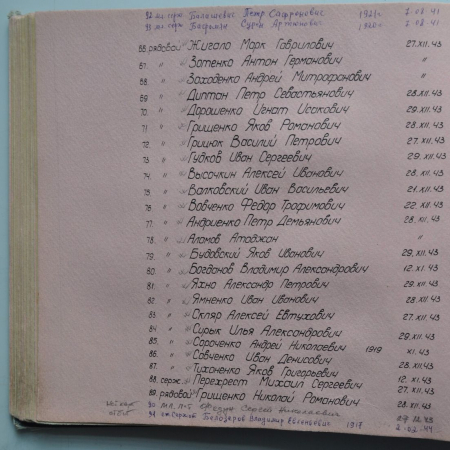 92 мл. серж. Балашевас Петр Сафронович 1921г. 7.03.41
93 мл. серж. Сурен Артемович 1920г. 2.08.41
66. рядовой Жигало Марк Гаврилович 27.XII.43
67. " Зотенко Антон Германович "
68. " Заходенко Андрей Митрофанович "
69. " Диптан Петр Севастьянович 28.XII.43
70. " Дорошенко Игнат Исакович 29.XII.43
71. " Грищенко Яков Романович 28.XII.43
72. " Грицюк Василий Петрович 27.XII.43
73. " Гудков Иван Сергеевич 29.XII.43
74. " Высочкин Алексей Иванович 28.XII.43
75. " Валковский Иван Васильевич 21.XII.43
76. " Вовченко Федор Трофимович 22.XII.43
77. " Андриенко Петр Демьянович 28.XI.43
78. " Аламов Атаджан "
79. " Будовский Яков Иванович 29.XII.43
80. " Богданов Владимир Александрович 12.XI.43
81. " Яхно Александр Петрович 29.XII.43
82. " Ямненко Иван Иванович 28.XII.43
83. " Скляр Алексей Евтухович "
84. " Сирык Илья Александрович 29.XII.43
85. " Сороченко Андрей Николаевич 1919 XI.43
86. " Савченко Иван Денисович 28.XII.43
87. " Тихоненко Яков Григорьевич 12.XI.43
88. серж. Перехрест Михаил Сергеевич 27.XII.43
89. рядовой Грищенко Николай Романович 28.XII.43
90 мл. л-т Сергей Николаевич 27.12.43
91 ст. сержант Белозеров Владимир Евгеньевич 1917 2.02.44